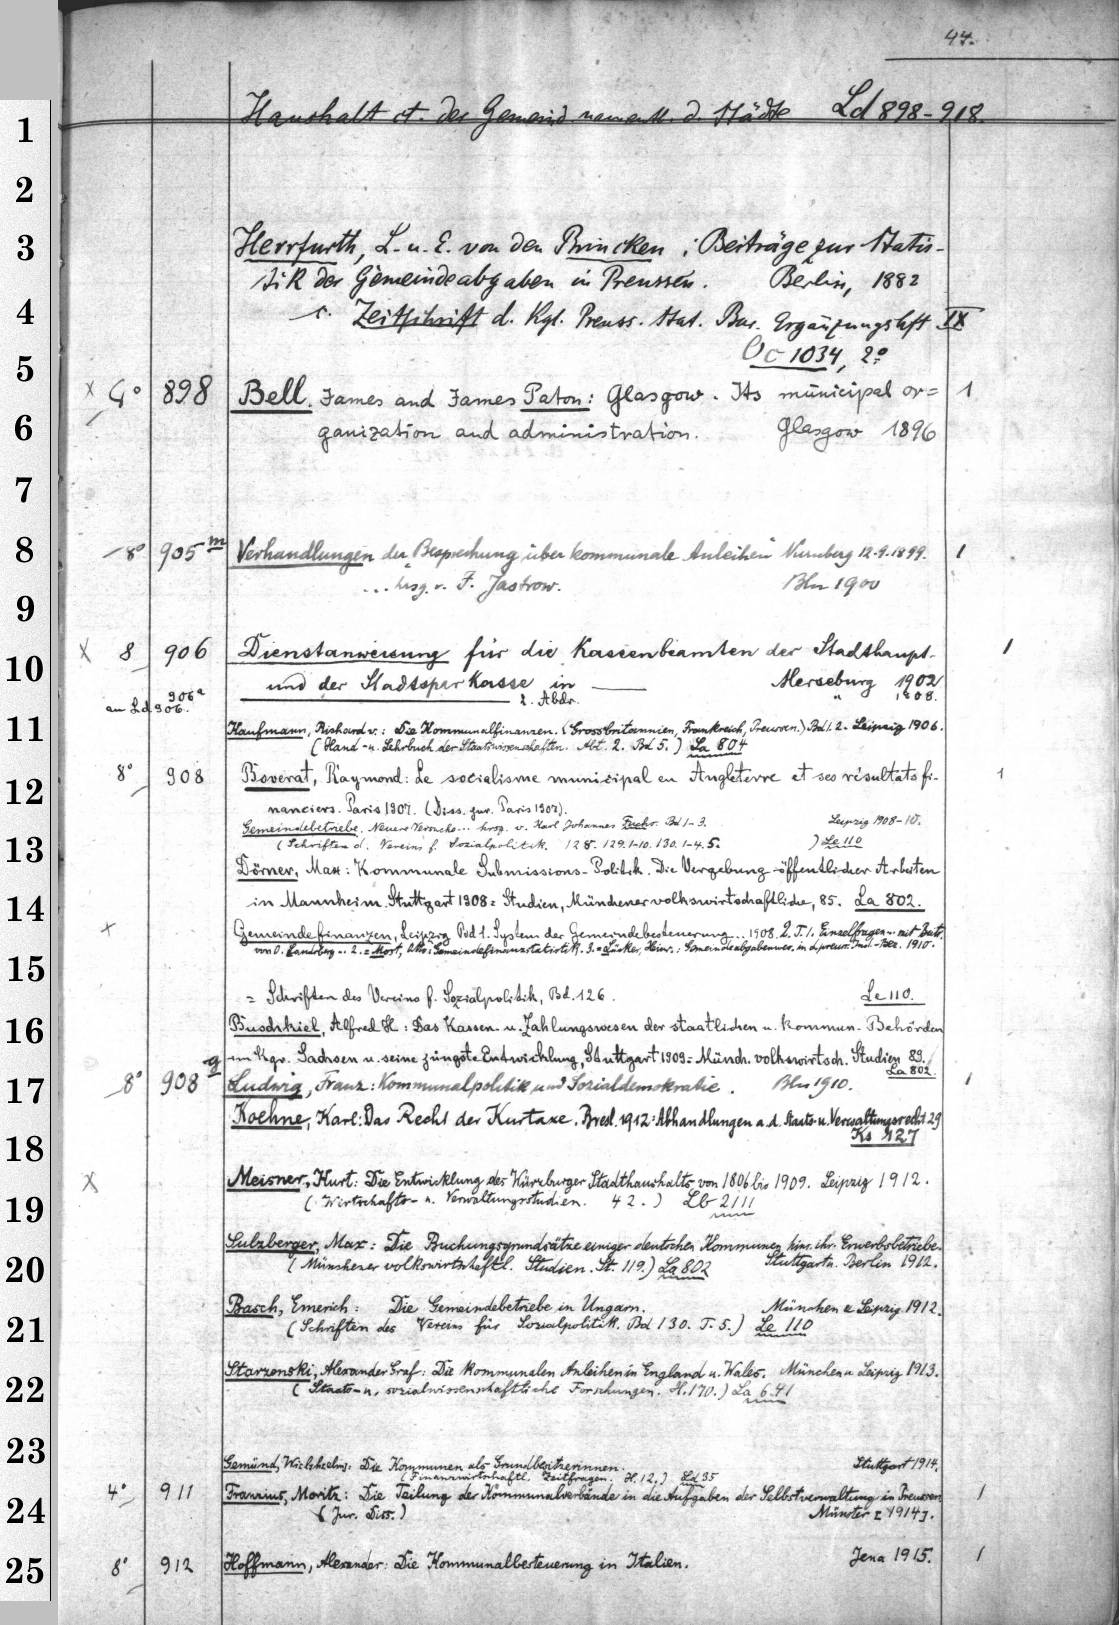 47.
1 Haushalt et. der Gemeind. namentl. d. Städte Ld 898-918.
2
3 Herrfurth, L. u. E. von den Brincken: Beiträge zur Statis-
tik der Gemeindeabgaben in Preussen. Berlin, 1882
4 Zeitschrift d. Kgl. Preuss. Stat. Bur. Ergänzungsheft IX
Oc 1034, 2°
5 x 4° 898 Bell. James and James Paton: Glasgow. Its municipal or= 1
6 ganization and administration. Glasgow 1896
7
8 8° 905 m Verhandlungen der Besprechung über kommunale Anleihen Nürnberg 12.9.1899. 1
... hrsg. v. J. Jastrow. Bln 1900
9
x 8 906 Dienstanweisung für die Kassenbeamten der Stadthaupt- 1
10 und der Stadtsparkasse in —— Merseburg 1902
906a 2. Abdr. " 1908.
an Ld 906.
11 Kaufmann, Richard v.: Die Kommunalfinanzen. (Grossbritannien, Frankreich, Preussen.) Bd 1. 2. Leipzig 1906.
(Hand- u. Lehrbuch der Staatswissenschaften. Abt. 2. Bd 5.) La 804
8° 908 Boverat, Raymond: Le socialisme municipal en Angleterre et ses résultats fi- 1
12 nanciers. Paris 1907. (Diss. jur. Paris 1907).
Gemeindebetriebe. Neuere Versuche... hrsg. v. Karl Johannes Fuchs. Bd 1-3. Leipzig 1908-10.
13 (Schriften d. Vereins f. Sozialpolitik. 128. 129.1-10. 130.1-4.5. ) Le 110
Dörner, Max: Kommunale Submissions-Politik. Die Vergebung öffentlicher Arbeiten
14 in Mannheim. Stuttgart 1908 = Studien, Münchener volkswirtschaftliche, 85. La 802.
x Gemeindefinanzen, Leipzig Bd 1. System der Gemeindebesteuerung... 1908. 2. T. 1. Einzelfragen... mit Beitr.
von O. Landsberg... 2. = Most, Otto: Gemeindefinanzstatistik. 3. = Lücker, Heinr.: Gemeindeabgabenwes. in d. preuss. Ind.-Bez. 1910.
15
= Schriften des Vereins f. Sozialpolitik, Bd. 126. Le 110.
16 Buschkiel, Alfred H.: Das Kassen- u. Zahlungswesen der staatlichen u. kommun. Behörden
im Kgr. Sachsen u. seine jüngste Entwicklung, Stuttgart 1909 = Münch. volkswirtsch. Studien 89.
La 802.
17 8° 908 g Ludwig, Franz: Kommunalpolitik und Sozialdemokratie. Bln 1910. 1
Koehne, Karl: Das Recht der Kurtaxe. Bresl. 1912: Abhandlungen a. d. Staats- u. Verwaltungsrecht 29
18 Ks 127
x Meisner, Kurt: Die Entwicklung des Würzburger Stadthaushalts von 1806 bis 1909. Leipzig 1912.
19 (Wirtschafts- u. Verwaltungsstudien. 42.) Lb 2111
Sulzberger, Max: Die Buchungsgrundsätze einiger deutschen Kommunen hins. ihr. Erwerbsbetriebe.
20 (Münchener volkswirtschaftl. Studien. St. 119.) La 802 Stuttgart u. Berlin 1912.
Basch, Emerich: Die Gemeindebetriebe in Ungarn. München & Leipzig 1912.
21 (Schriften des Vereins für Sozialpolitik. Bd 130. T. 5.) Le 110
Starzenski, Alexander Graf: Die kommunalen Anleihen in England u. Wales. München u Leipzig 1913.
22 (Staats- u. sozialwissenschaftliche Forschungen. H. 170.) La 641
23
Gemünd, Wilhelm: Die Kommunen als Grundbesitzerinnen. Stuttgart 1914.
(Finanzwirtschaftl. Zeitfragen. H. 12.) Ld 35
4° 911 Franzius, Moritz: Die Teilung der Kommunalverbände in die Aufgaben der Selbstverwaltung in Preussen 1
24 (Jur. Diss.) Münster [1914].
25 8° 912 Hoffmann, Alexander: Die Kommunalbesteuerung in Italien. Jena 1915. 1